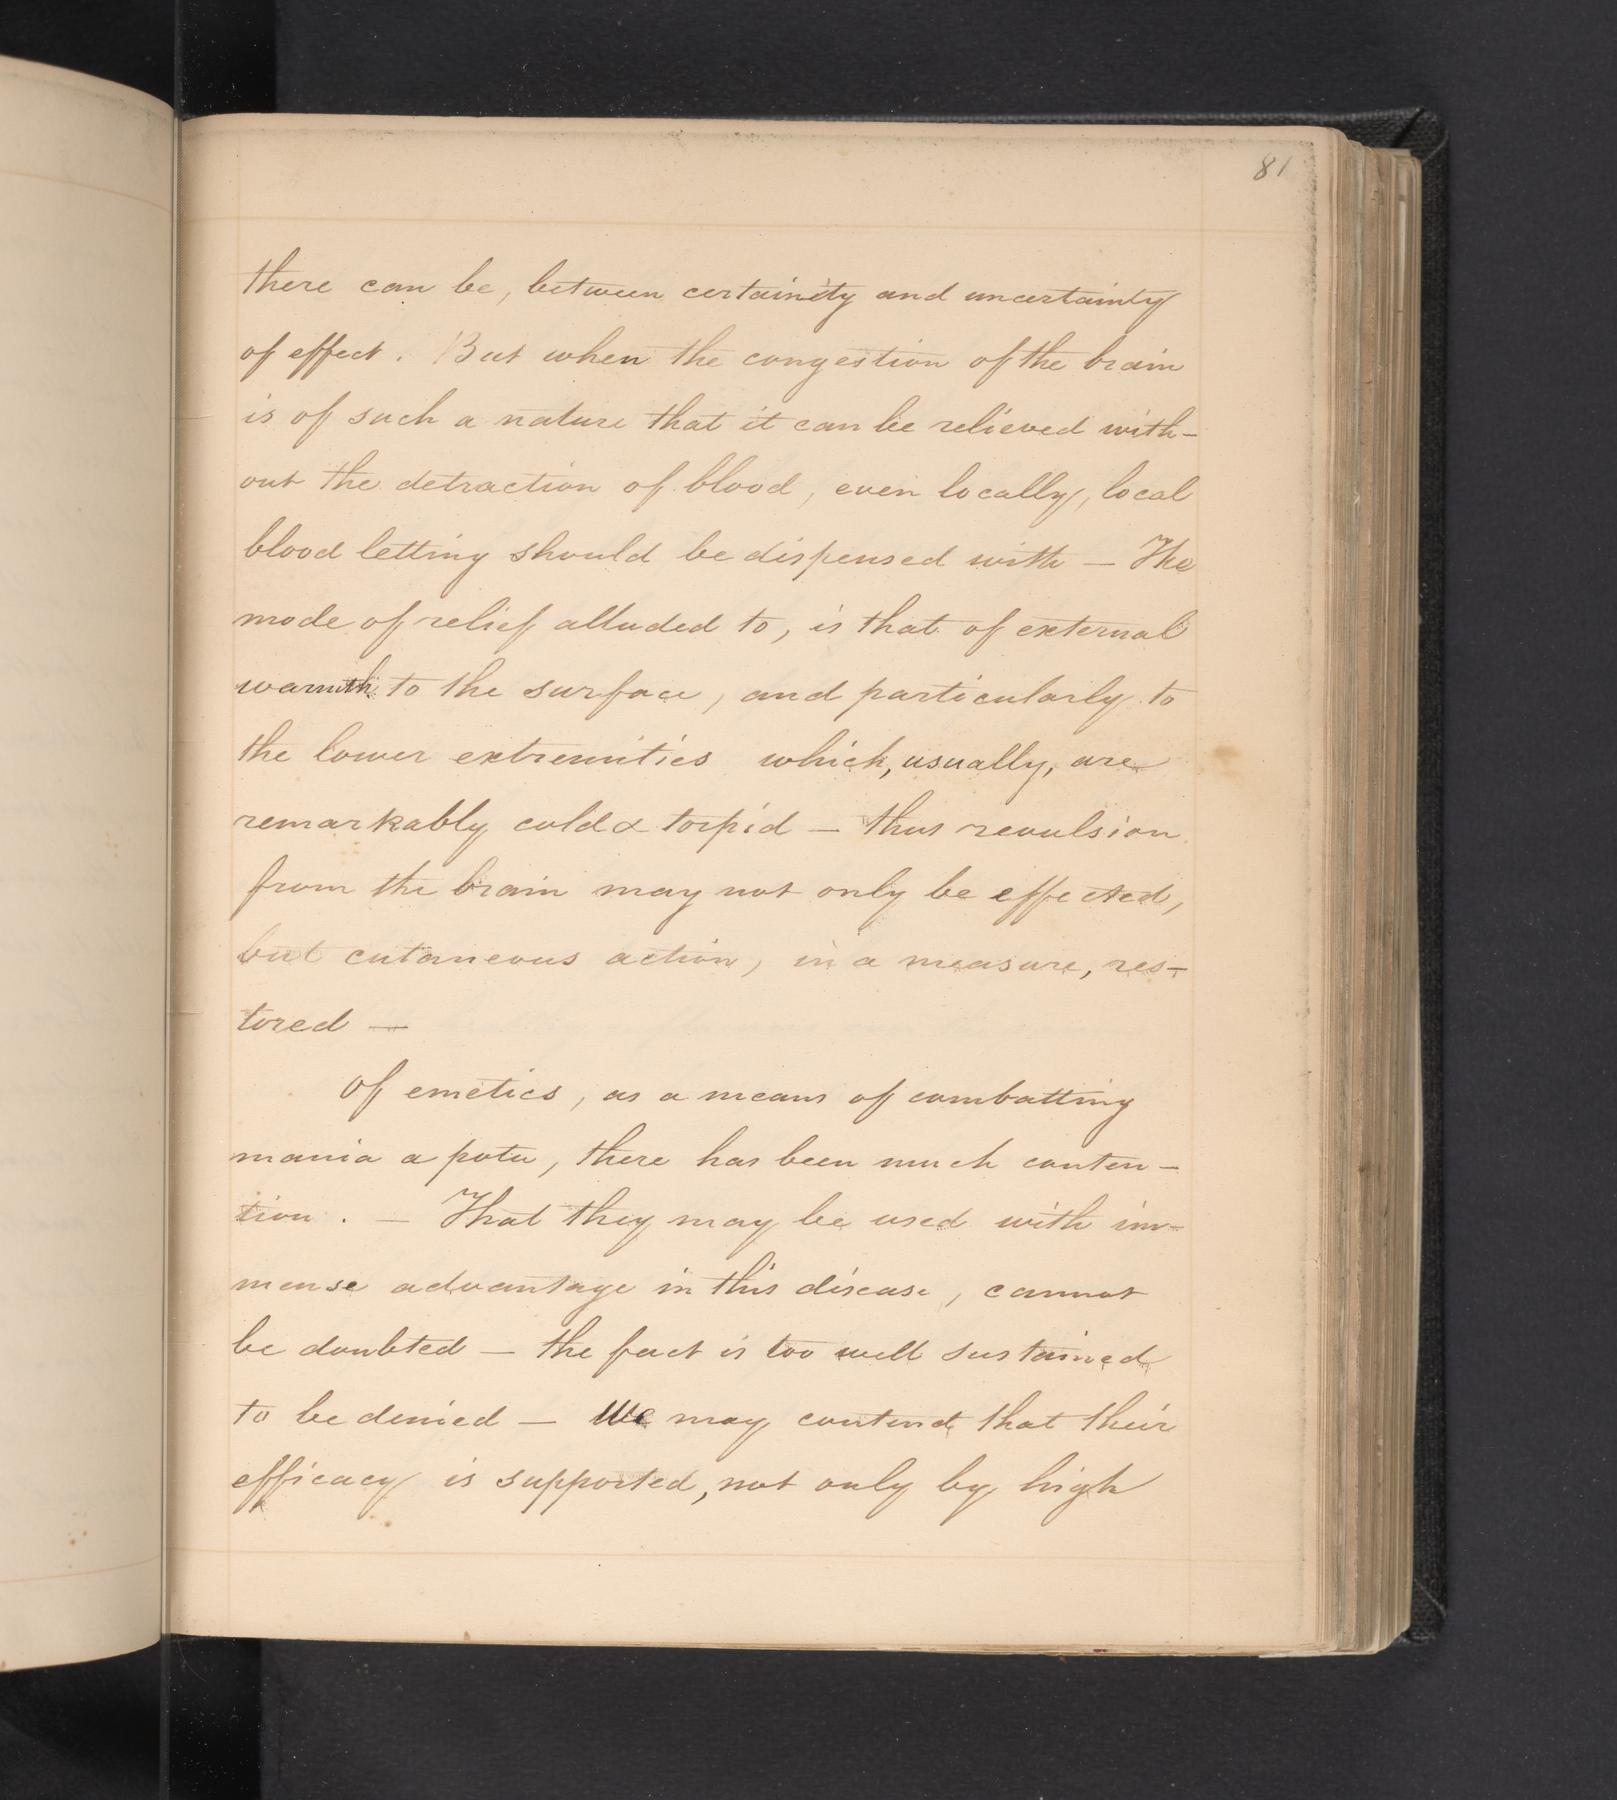 81
there can be, between certainity and uncertainty
of effect. But when the congestion of the brain
is of such a nature that it can be relieved with-
out the detraction of blood, even locally, local
blood letting should be dispensed with — The
mode of relief alluded to, is that of external
warmth to the surface, and particularly to
the lower extremities which, usually, are
remarkably cold & torpid — thus revulsion
from the brain may not only be effected,
but cutaneous action, in a measure, res-
tored —
Of emetics, as a means of combatting
mania a potu, there has been much conten-
tion. — That they may be used with im-
mense advantage in this disease, cannot
be doubted — the fact is too well sustained
to be denied — We may contend that their
efficacy is supported, not only by high